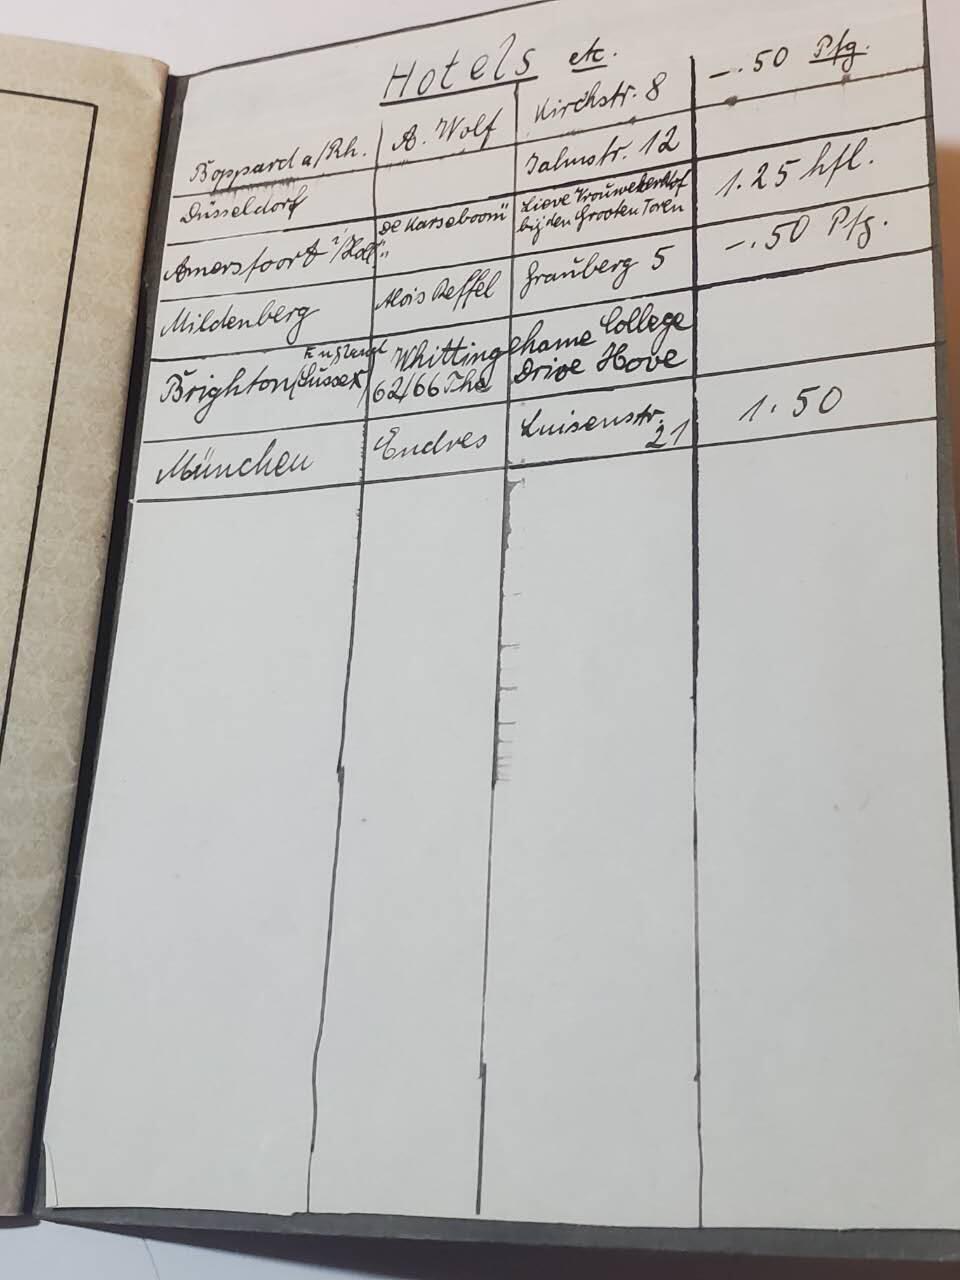 Hotels etc.
Boppard a/Rh. A. Wolf Kirchstr. 8 –.50 Pfg.
Düsseldorf Jahnstr. 12
Amersfoort i/Holl. "De Karseboom" Lieve Vrouwekerkhof 1.25 hfl.
bij den Grooten Toren
Mildenberg Alois Reffel Grauberg 5 –.50 Pfg.
England
Brighton (Sussex) Whittinghame College
62/66 The Drive Hove
München Endres Luisenstr. 1.50
21